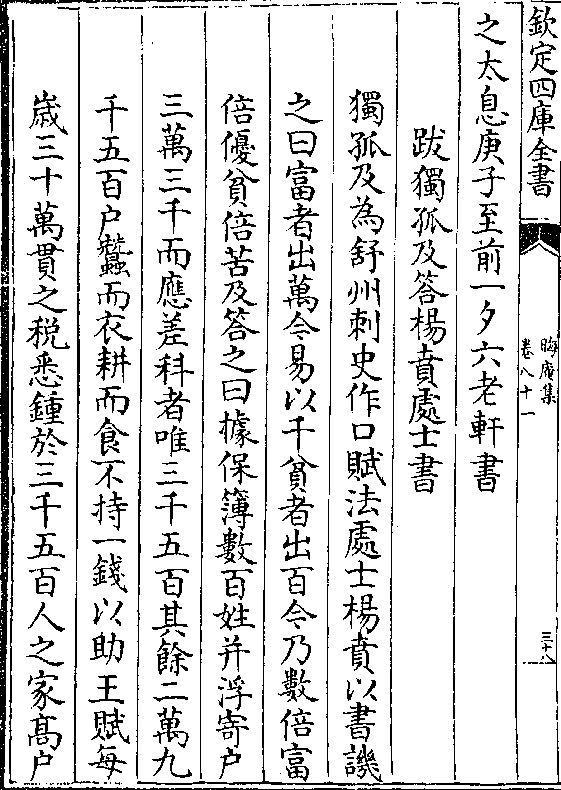 欽定四庫全書
晦庵集
卷八十一
三十八
之太息庚子至前一夕六老軒書
跋獨孤及答楊賁處士書
獨孤及為舒州刺史作口賦法處士楊賁以書譏
之曰富者出萬今易以千貧者出百今乃數倍富
倍優貧倍苦及答之曰據保簿數百姓并浮寄户
三萬三千而應差科者唯三千五百其餘二萬九
千五百户蠶而衣耕而食不持一錢以助王賦每
歳三十萬貫之税悉鍾於三千五百人之家髙户